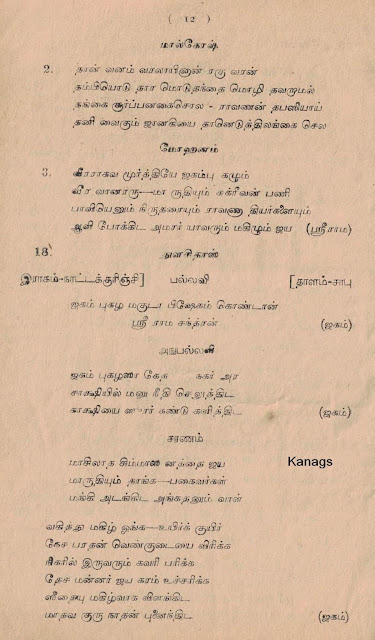 ( 12 )
மால்கோஷ்
2. தான் வனம் வாலாயினான் ஈரு வான்
தம்பியொடு தார மொடுதந்தை மொழி தவருமல்
தங்கை சூர்ப்பனகைசொல - ராவணன் தபஸியாய்
தனி வைகும் ஜானகியை தானெடுத்திலங்கை செல
மோஹனம்
3. வீரராகவ மூர்த்தியே ஜகம்பு கழும்
வீர வானரரு—மா ருதியும் சுக்ரீவன் பணி
பாவியெனும் நிருதரையும் ராவணு தியர்களையும்
ஆவி போக்கிட அமரர் யாவரும் மகிழும் ஜய (ஸ்ரீராம)
18. துளசிதாஸ்
இராகம்-நாட்டக்குரிஞ்சி] பல்லவி [தாளம்-சாபு
ஜகம் புகழ மகுடா பிஷேகம் கொண்டான்
ஸ்ரீ ராம சந்த்ரன் (ஜகம்)
அநுபல்லவி
ஜகம் புகழ கேத சுகர் அர
சாக்ஷியில் மனு நீதி செலுத்திட
காக்ஷியை கண்டு களித்திட (ஜகம்)
சரணம்
Kanags
மாசிலாத சிம்மாஸ னத்தை ஜய
மாருதியும் தாங்க—பகைவர்கள்
மங்கி அடங்கிட அங்கதனும் வாள்
வகித்து மகிழ் ஓங்க—உயிர்க் குயிர்
நேச பரதன் வெண்குடையை விரிக்க
நிகரில் இருவரும் கவரி பரிக்க
தேச மன்னர் ஜய கரம் உச்சரிக்க
ஸீதையு மகிழ்வாக விளங்கிட
மாதவ குரு நாதன் புனைந்திட (ஜகம்)